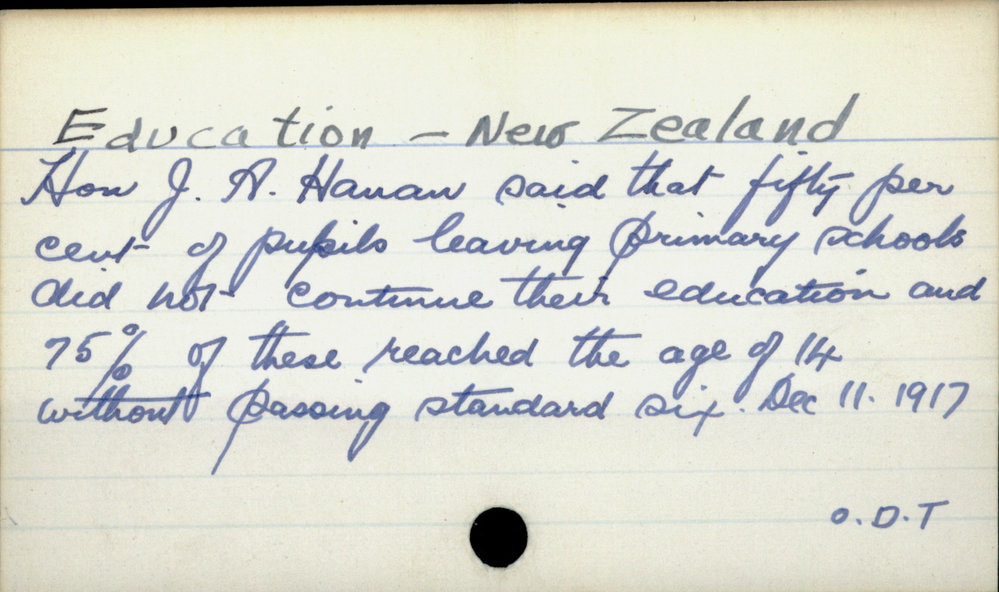 Education - New Zealand
Hon J. A. Hanan said that fifty per
cent of pupils leaving primary schools
did not continue their education and
75% of these reached the age of 14
without passing standard six. Dec 11. 1917
O.D.T